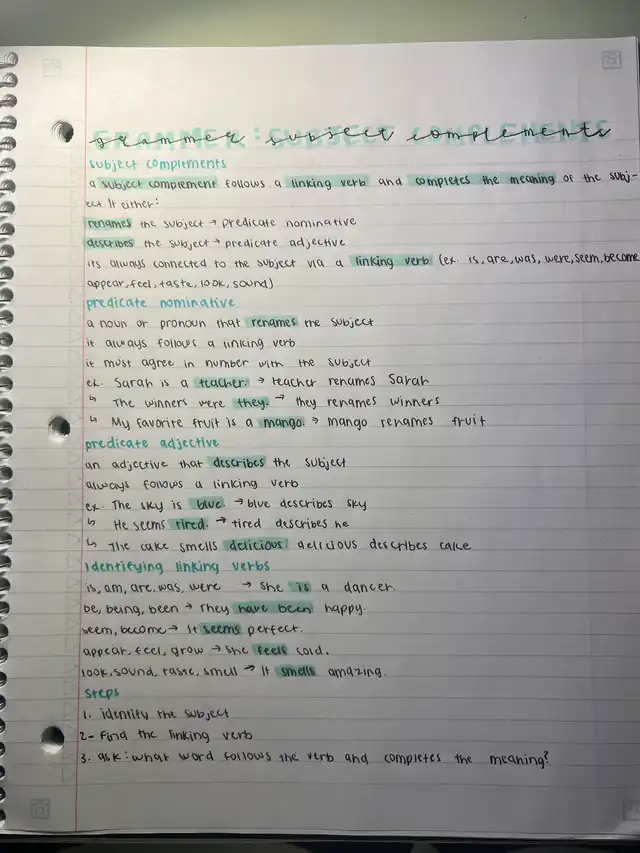 grammer : subject complements
subject complements
a subject complement follows a linking verb and completes the meaning of the subj-
ect. It either:
renames the subject → predicate nominative
describes the subject → predicate adjective
its always connected to the subject via a linking verb (ex. is, are, was, were, seem, become
appear, feel, taste, look, sound)
predicate nominative
a noun or pronoun that renames the subject
it always follows a linking verb
it must agree in number with the subject
ex. Sarah is a teacher. → teacher renames Sarah
↳ The winners were they. → they renames winners
↳ My favorite fruit is a mango. → mango renames fruit
predicate adjective
an adjective that describes the subject
always follows a linking verb
ex. The sky is blue. → blue describes sky
↳ He seems tired. → tired describes he
↳ The cake smells delicious. delicious describes cake
Identifying linking verbs
is, am, are, was, were → She is a dancer.
be, being, been → They have been happy.
seem, become → It seems perfect.
appear, feel, grow → She feels cold.
look, sound, taste, smell → It smells amazing.
Steps
1. identify the subject
2- Find the linking verb
3. ask: what word follows the verb and completes the meaning?